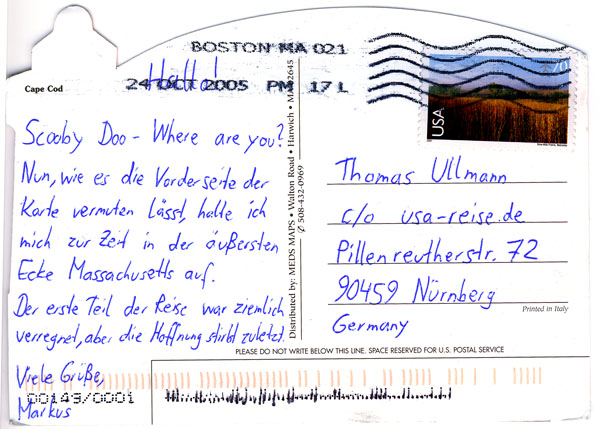 BOSTON MA 021
24 OCT 2005 PM 17 L
Cape Cod
Scooby Doo - Where are you?
Nun, wie es die Vorderseite der
Karte vermuten lässt, halte ich
mich zur Zeit in der äußersten
Ecke Massachusetts auf.
Der erste Teil der Reise war ziemlich
verregnet, aber die Hoffnung stirbt zuletzt.
Viele Grüße,
Markus
00149/0001
Distributed by: MEDS MAPS • Walton Road • Harwich • MA 02645
✆ 508-432-0969
USA
70
Thomas Ullmann
c/o usa-reise.de
Pillenreutherstr. 72
90459 Nürnberg
Germany
Printed in Italy
PLEASE DO NOT WRITE BELOW THIS LINE. SPACE RESERVED FOR U.S. POSTAL SERVICE